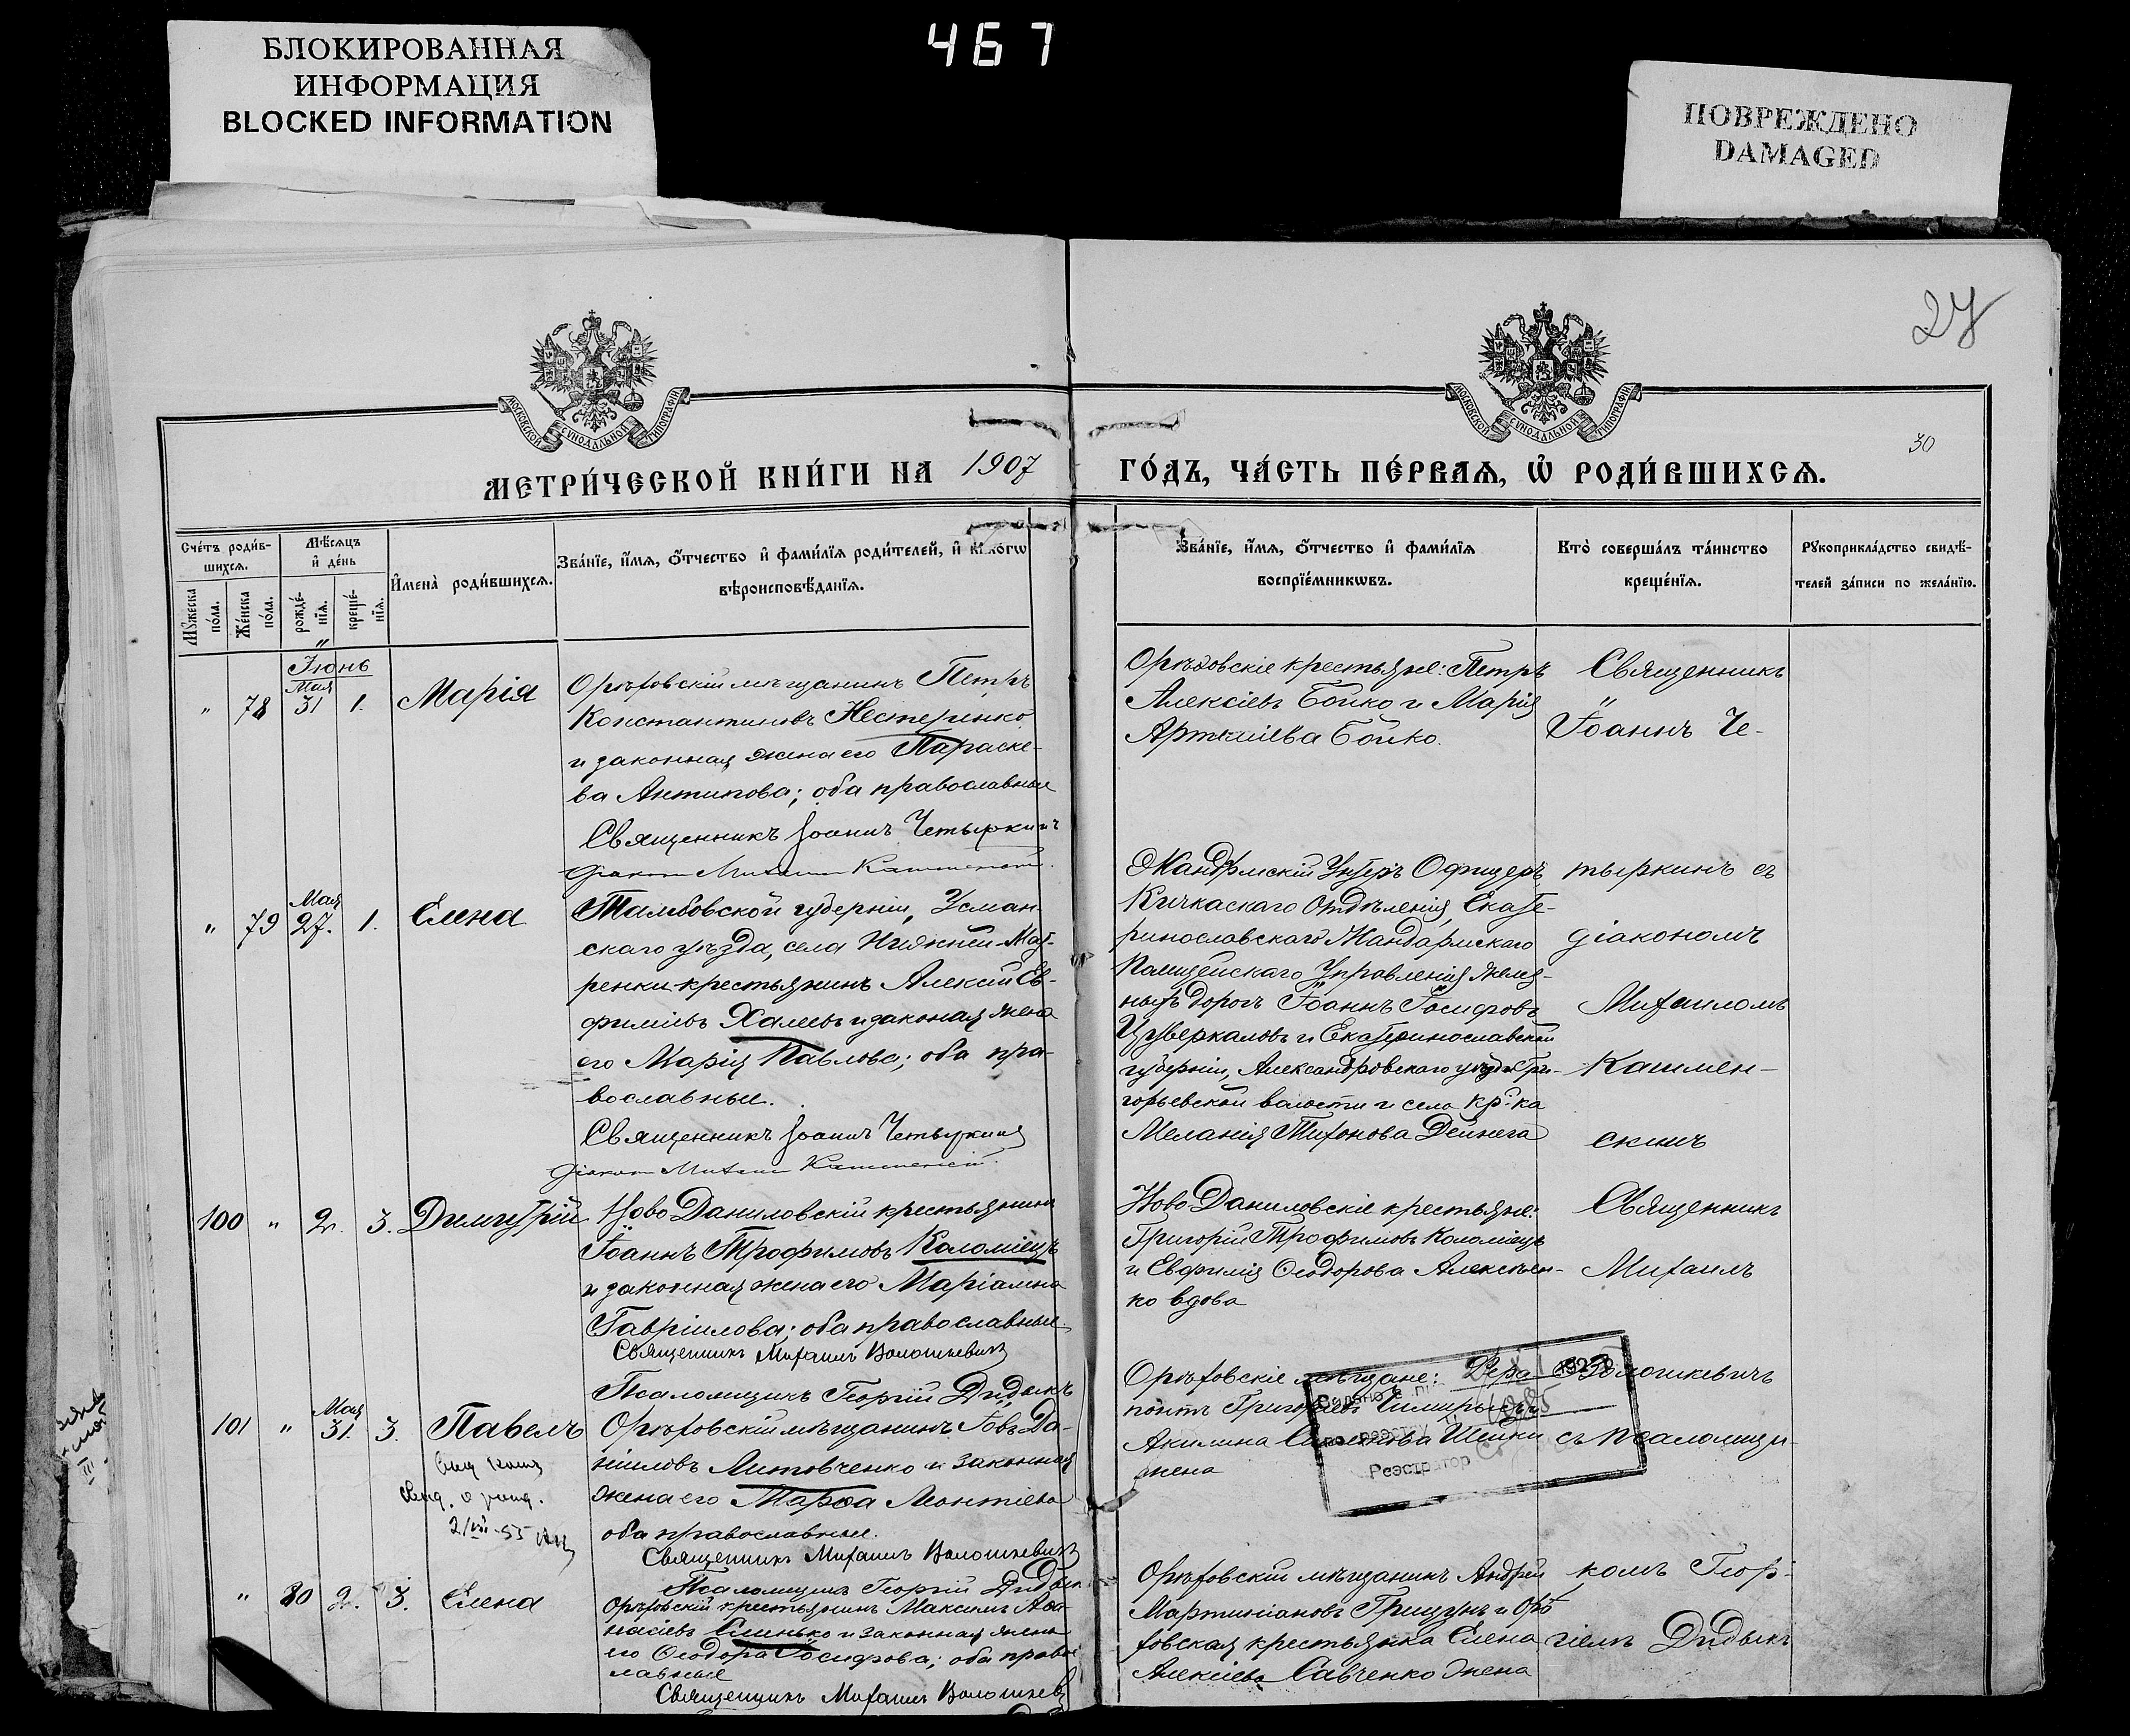 БЛОКИРОВАННАЯ
ИНФОРМАЦИЯ
BLOCKED INFORMATION
467
ПОВРЕЖДЕНО
DAMAGED
27
МОСКОВСКОЙ СѴНОДАЛЬНОЙ ТИПОГРАФІИ
МОСКОВСКОЙ СѴНОДАЛЬНОЙ ТИПОГРАФІИ
30
МЕТРИ́ЧЕСКОЙ КНИ́ГИ НА 1907
ГО́ДЪ, ЧА́СТЬ ПЕ́РВАѦ, Ѽ РОДИ́ВШИХСѦ.
Сче́тъ роди́в-
шихсѧ.
Мꙋ́жеска
по́ла.
Же́нска
по́ла.
Мѣ́сѧцъ
и҆ де́нь
рожде́-
нїѧ.
креще́-
нїѧ.
И҆мена̀ роди́вшихсѧ.
Зва́нїе, и҆́мѧ, ѻ҆́тчество и҆ фами́лїѧ роди́телей, и҆ како́гѡ
вѣроисповѣ́данїѧ.
Зва́нїе, и҆́мѧ, ѻ҆́тчество и҆ фами́лїѧ
воспрїе́мникѡвъ.
Кто̀ соверша́лъ та́инство
креще́нїѧ.
Рꙋкоприкла́дство свидѣ́-
телей за́писи по жела́нїю.
Іюнь
" 78 Мая 31 1. Марія
Орѣховскій мѣщанинъ Петръ
Константиновъ Нестеренко
и законная жена его Параске-
ва Антипова; оба православные
Священникъ Іоаннъ Четыркинъ
Діаконъ Михаилъ Кашменскій.
Орѣховскіе крестьяне: Петръ
Алексіевъ Бойко и Марія
Артеміева Бойко.
Священникъ
Іоаннъ Че-
" 79 Мая 27. 1. Елена
Тамбовской губерніи, Усман-
скаго уѣзда, села Нижней-Мат-
ренки крестьянинъ Алексій Ев-
фиміевъ Халевъ и законная жена
его Марія Павлова; оба пра-
вославные.
Священникъ Іоаннъ Четыркинъ
Діаконъ Михаилъ Кашменскій.
Жандрмскій Унтеръ Офицеръ
Кичкаскаго Отдѣленія, Екате-
ринославскаго Жандармскаго
Полицейскаго Управленія желѣз-
ныхъ дорогъ Іоаннъ Іосифовъ
Цуверкаловъ и Екатеринославской
губерніи, Александровскаго уѣзда Гри-
горьевской волости и села кр-ка
Меланія Тихонова Дейнега
тыркинъ съ
діакономъ
Михаиломъ
Кашмен-
скимъ
100 " 2. 3. Димитрій
Ново Даниловскій крестьянинъ
Іоаннъ Трофимовъ Коломіецъ
и законная жена его Маріамна
Гавріилова; оба православные.
Священникъ Михаилъ Волошкевичъ
Псаломщикъ Георгій Дидыкъ
Ново Даниловскіе крестьяне:
Григорій Трофимовъ Коломіецъ
и Евфимія Ѳеодорова Алексѣен-
ко вдова
Священникъ
Михаилъ
101 " Мая 31. 3. Павелъ
Свид. о рожд.
Орѣховскій мѣщанинъ Іовъ Да-
ніиловъ Литовченко и законная
жена его Марѳа Леонтіева
оба православные.
Священникъ Михаилъ Волошкевичъ
Псаломщикъ Георгій Дидыкъ
Орѣховскіе мѣщане:
понтъ Григорьевъ
Акилина
жена
Реэстратор
Волошкевичъ
съ псаломщи-
" 80 2. 3. Елена
Орѣховскій крестьянинъ Максимъ Аѳа-
насіевъ Сленько и законная жена
его Ѳеодора Іосифова; оба правос-
лавные
Священникъ Михаилъ Волошкев
Орѣховскій мѣщанинъ Андрей
Мартиніановъ Грищунъ и Орѣ-
ховская крестьянка Елена
Алексіева Савченко жена
комъ Геор-
гіемъ Дидыкъ